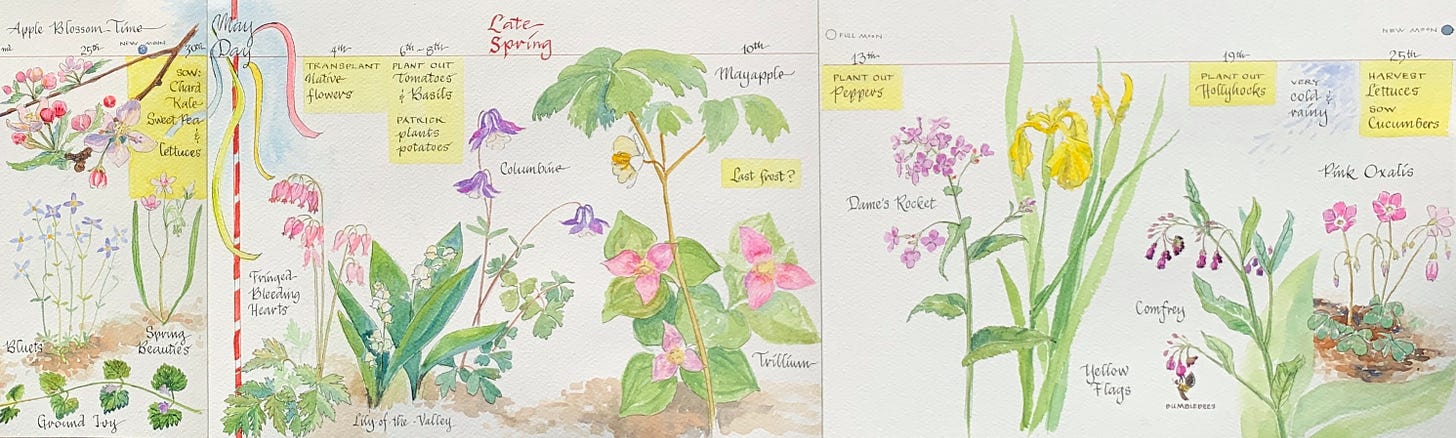 Apple Blossom Time
25th
NEW MOON
30th
SOW:
Chard
Kale
Sweet Pea
&
lettuces
Bluets
Spring
Beauties
Ground Ivy
May
Day
Late
Spring
4th
TRANSPLANT
Native
flowers
6th-8th
PLANT OUT
Tomatoes
& Basils
PATRICK
plants
potatoes
10th
Mayapple
Columbine
Last frost?
Fringed
Bleeding
Hearts
Lily of the Valley
Trillium
FULL MOON
13th
PLANT OUT
Peppers
Dame's Rocket
Yellow
Flags
19th
PLANT OUT
Hollyhocks
VERY
cold &
rainy
NEW MOON
25th
HARVEST
Lettuces
SOW
Cucumbers
Pink Oxalis
Comfrey
BUMBLEBEES